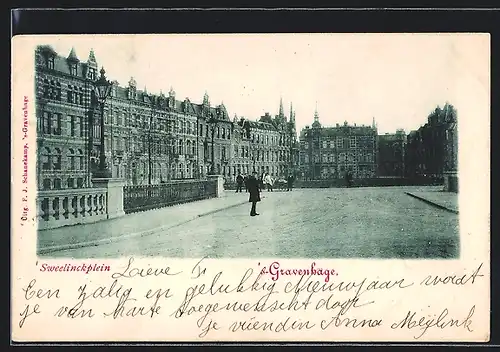 Uitg. F. J. Schanekamp, 's-Gravenhage
Sweelinckplein
's-Gravenhage.
Lieve
Een zalig en gelukkig Nieuwjaar wordt
je van harte toegewenscht door
je vrienden Anna Meijlink